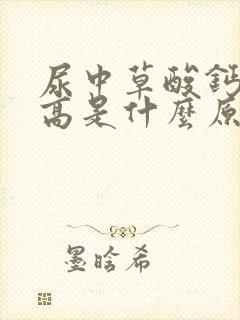 尿中草酸鈣
高是什麼原
墨晗希